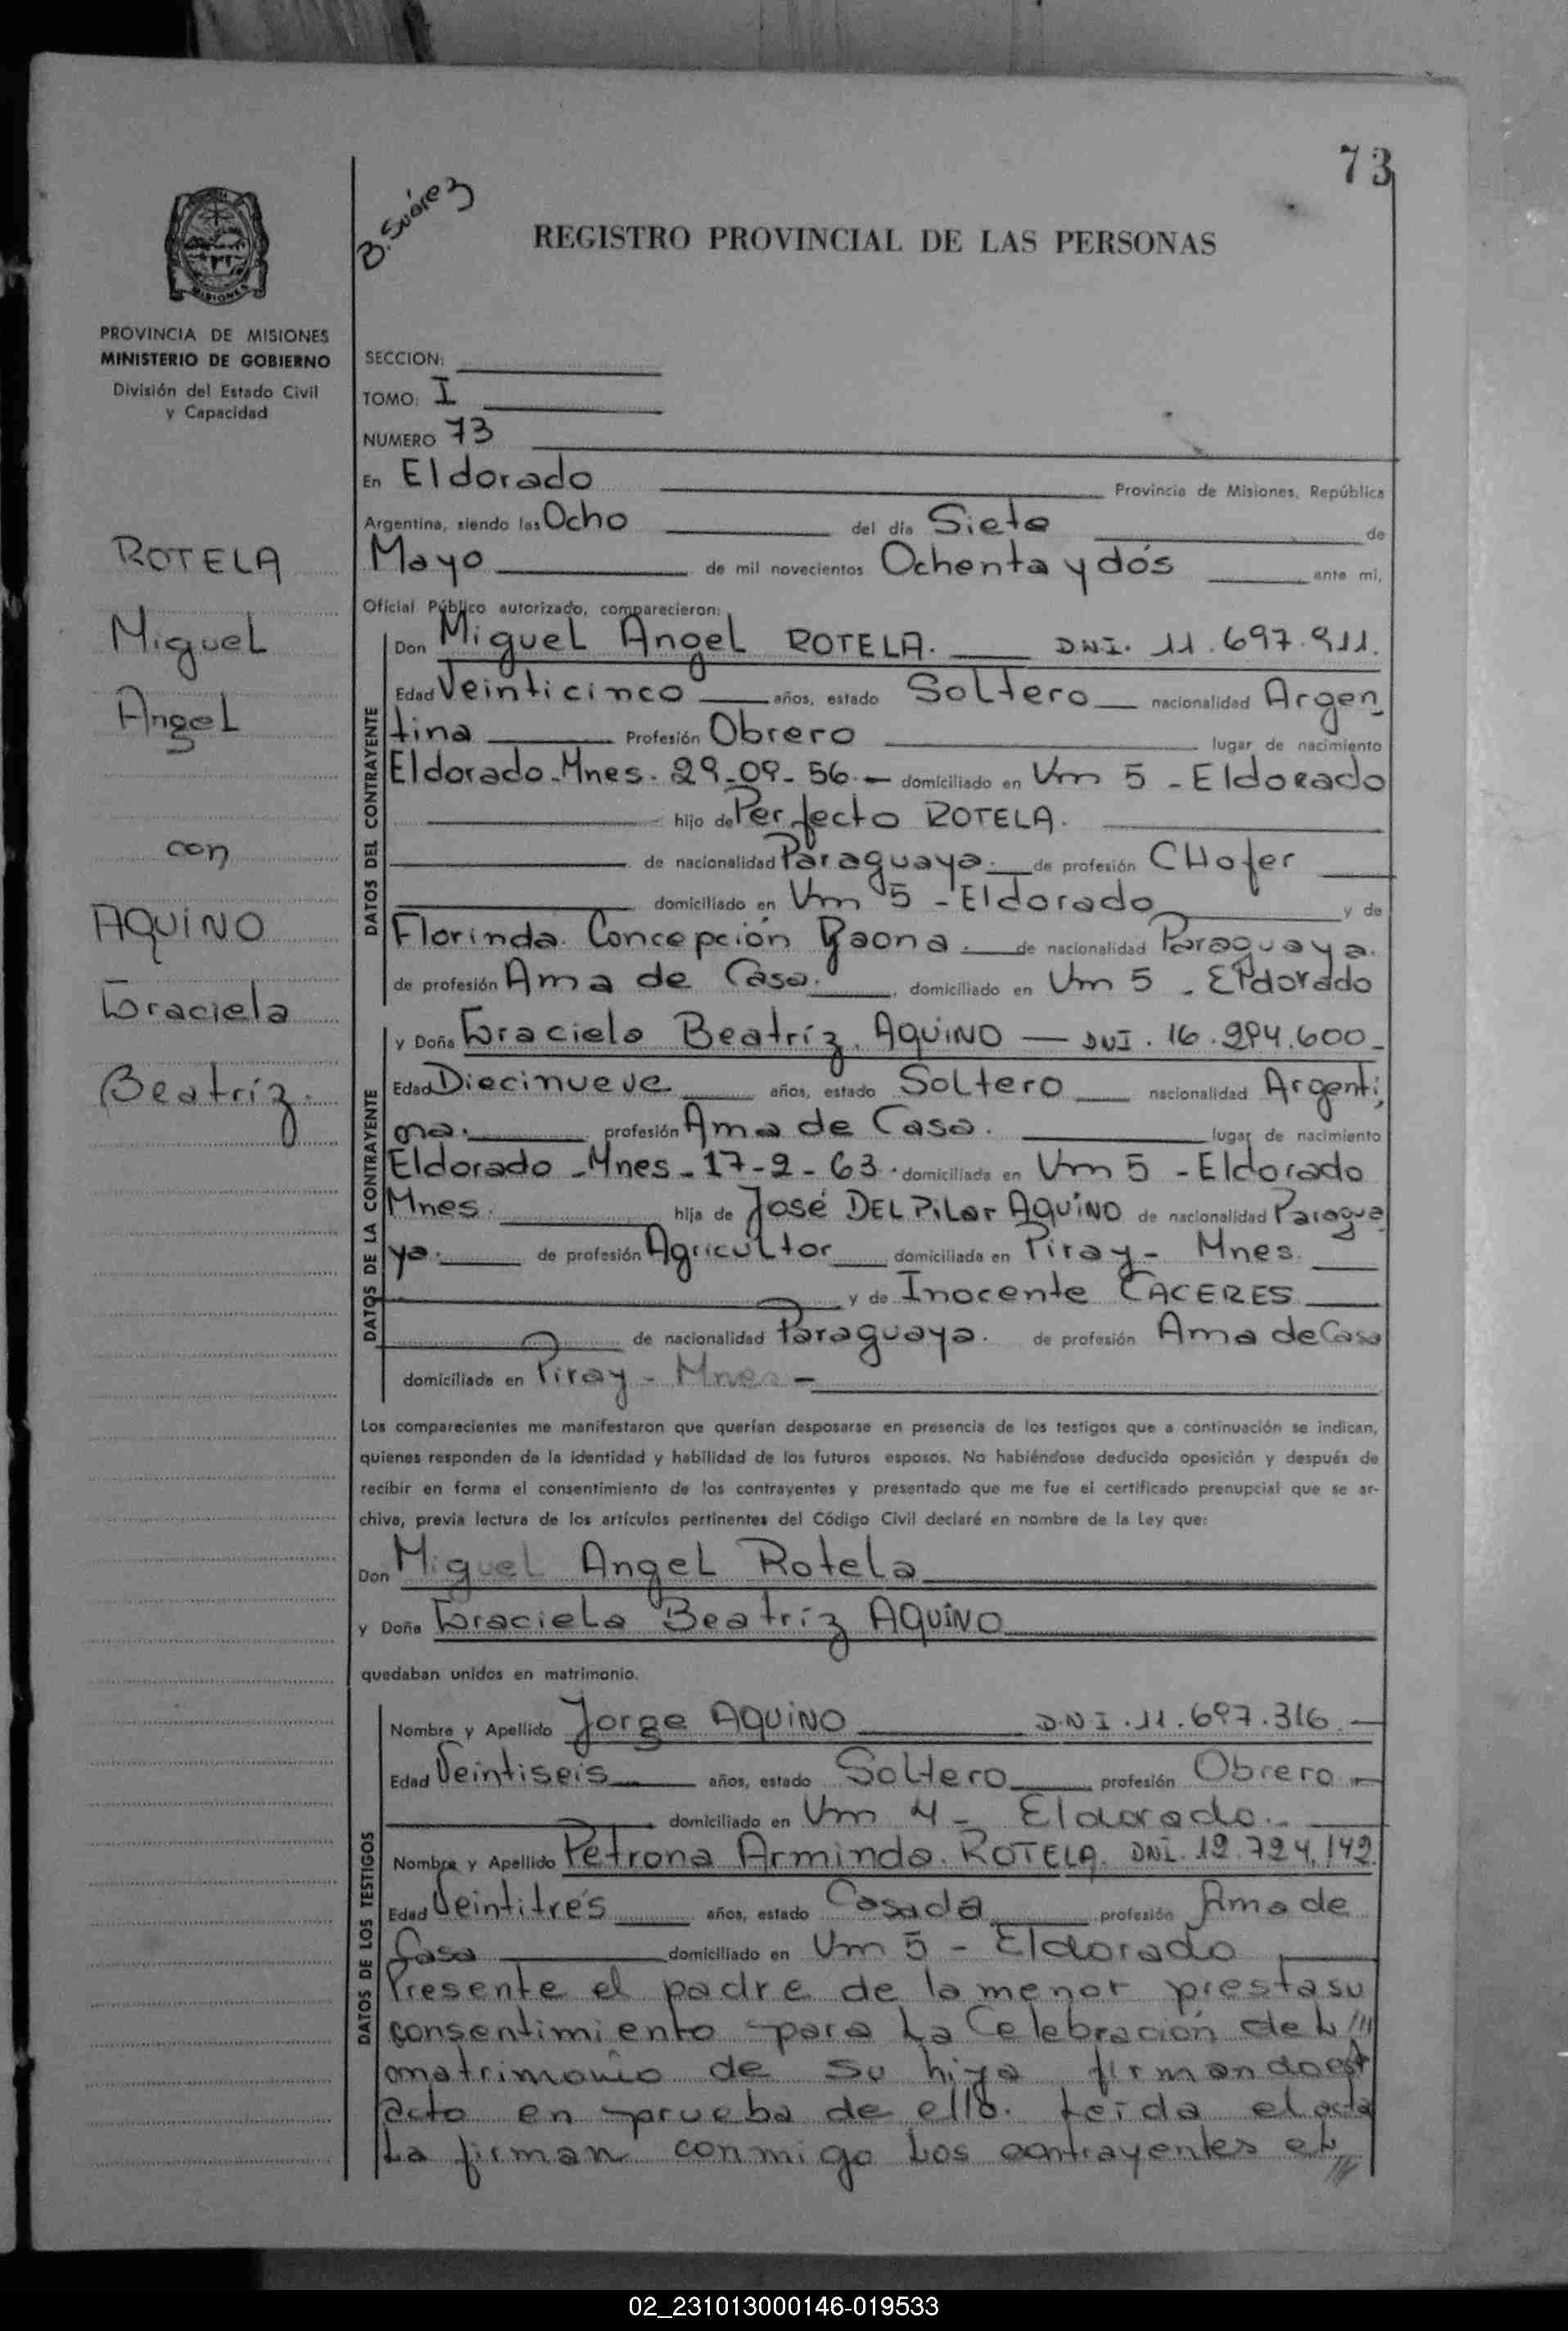 73
B. Suárez
REGISTRO PROVINCIAL DE LAS PERSONAS
MISIONES
PROVINCIA DE MISIONES
MINISTERIO DE GOBIERNO
División del Estado Civil
y Capacidad
ROTELA
Miguel
Angel
con
AQUINO
Graciela
Beatríz.
SECCION:
TOMO: I
NUMERO 73
En Eldorado Provincia de Misiones, República
Argentina, siendo las Ocho del día Siete de
Mayo de mil novecientos Ochenta y dós ante mi,
Oficial Público autorizado, comparecieron:
DATOS DEL CONTRAYENTE
Don Miguel Angel ROTELA. DNI. 11.697.911.
Edad Veinticinco años, estado Soltero nacionalidad Argen
tina Profesión Obrero lugar de nacimiento
Eldorado-Mnes. 29-09-56.- domiciliado en Vm 5 - Eldorado
hijo de Perfecto ROTELA.
de nacionalidad Paraguaya. de profesión CHofer
domiciliado en Vm 5 - Eldorado y de
Florinda Concepción Gaona. de nacionalidad Paraguaya.
de profesión Ama de Casa. domiciliado en Vm 5 - Eldorado
DATOS DE LA CONTRAYENTE
y Doña Graciela Beatríz. AQUINO - DNI. 16.294.600-
Edad Diecinueve años, estado Soltero nacionalidad Argenti
na. profesión Ama de Casa. lugar de nacimiento
Eldorado-Mnes-17-2-63. domiciliada en Vm 5 - Eldorado
Mnes. hija de José DEL PiLar AQUINO de nacionalidad Paragua
ya. de profesión Agricultor domiciliado en Piray- Mnes.
y de Inocente CACERES
de nacionalidad Paraguaya. de profesión Ama de Casa
domiciliada en Piray - Mnes -
Los comparecientes me manifestaron que querían desposarse en presencia de los testigos que a continuación se indican,
quienes responden de la identidad y habilidad de los futuros esposos. No habiéndose deducido oposición y después de
recibir en forma el consentimiento de los contrayentes y presentado que me fue el certificado prenupcial que se ar-
chiva, previa lectura de los artículos pertinentes del Código Civil declaré en nombre de la Ley que:
Don Miguel Angel Rotela
y Doña Graciela Beatríz AQUINO
quedaban unidos en matrimonio.
DATOS DE LOS TESTIGOS
Nombre y Apellido Jorge AQUINO D.N.I. 11.697.316.-
Edad Veintiseis años, estado Soltero profesión Obrero -
domiciliado en Vm 4 - Eldorado.
Nombre y Apellido Petrona Arminda. ROTELA. DNI. 12.724.142.
Edad Veintitrés años, estado Casada profesión Ama de
Casa domiciliado en Vm 5 - Eldorado
Presente el padre de la menor presta su
consentimiento para La Celebración del ///
matrimonio de su hija firmando est
acto en prueba de ello. Leída el acta
La firman conmigo Los contrayentes el
02_231013000146-019533